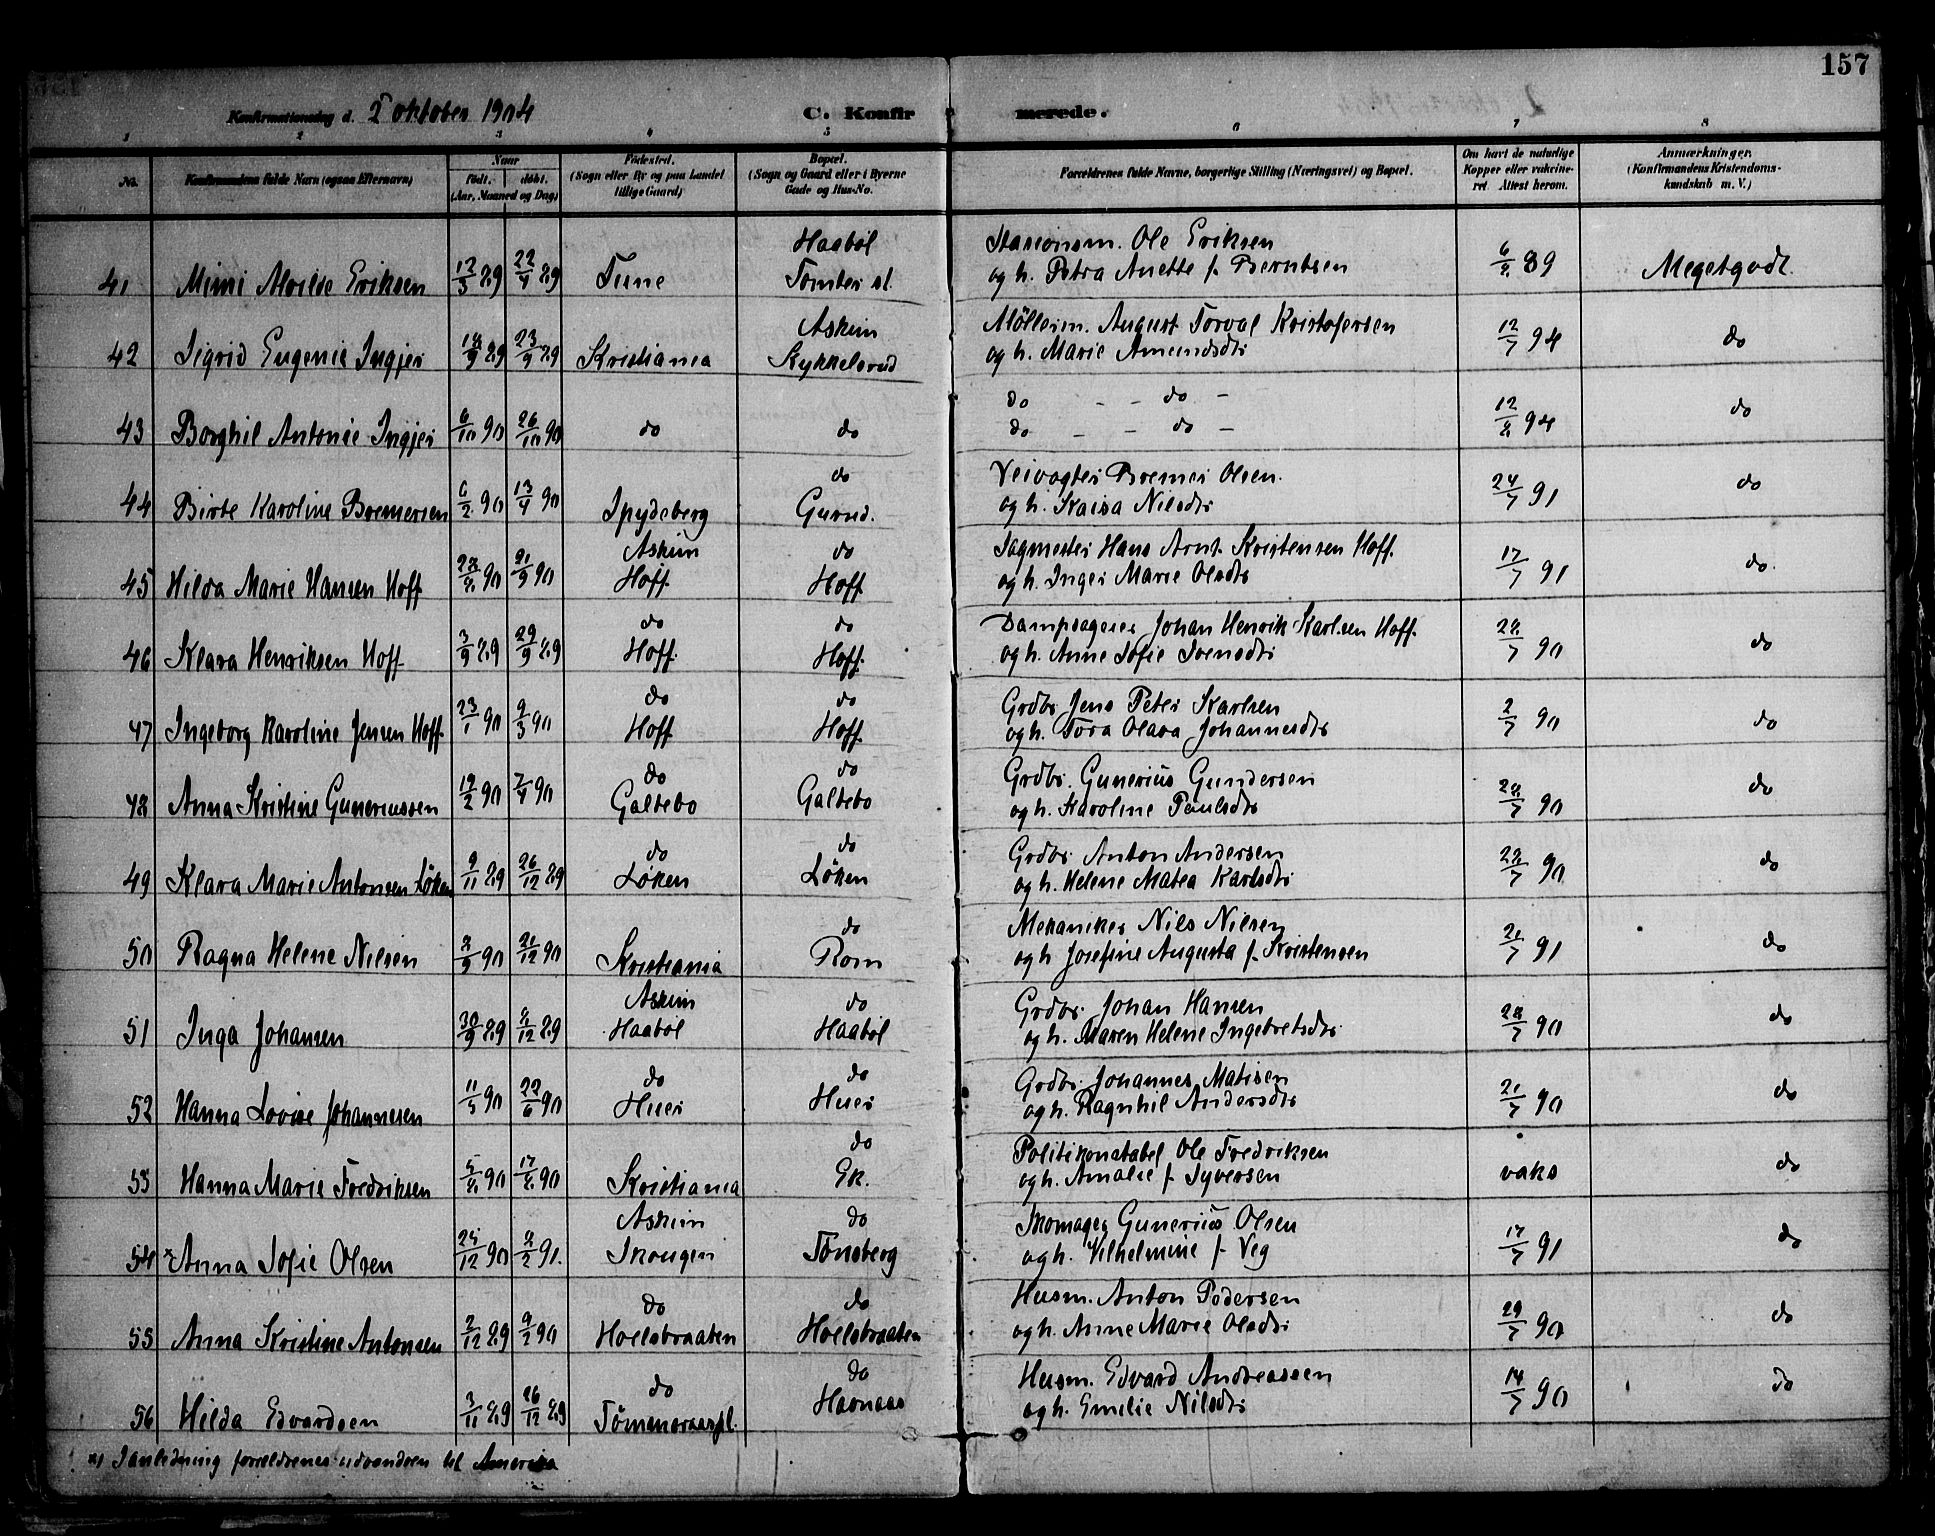 157
Konfirmationsdag d. 2 oktober 1904 C. Konfirmerede.
1 2 3 4 5 6 7 8
No. Konfirmandens fulde Navn (ogsaa Efternavn) Naar født. døbt. (Aar, Maaned og Dag) Fødested. (Sogn eller By og paa Landet tillige Gaard) Bopæl. (Sogn og Gaard eller i Byerne Gade og Hus-No. Forældrenes fulde Navne, borgerlige Stilling (Næringsvei) og Bopæl. Om havt de naturlige Kopper eller vakcineret Attest herom. Anmærkninger. (Konfirmandens Kristendomskundskab m. V.)
Haabøl Stasionsm. Ole Eriksen
41 Mimi Alvilde Eriksen 12/3 89 22/4 89 Tune Tomter st. og h. Petra Anette f. Berntsen 6/8 89 Megetgodt.
Askim Møllerm. August Torval Kristofersen
42 Sigrid Eugenie Ingjer 18/9 89 23/9 89 Kristiania Kykkelsrud og h. Marie Amundsdtr 12/7 94 do
do - - do -
43 Borghil Antonie Ingjer 6/10 90 26/10 90 do do do - - do - 12/8 94 do
do Veivogter Bremer Olsen.
44 Birte Karoline Bremersen 6/2 90 13/4 90 Spydeberg Gurud. og h. Kaisa Nilsdtr 24/7 91 do
Askim do Sagmester Hans Arnt Kristensen Hoff.
45 Hilda Marie Hansen Hoff 28/8 90 21/9 90 Hoff Hoff og h. Inger Marie Olsdtr 17/7 91 do.
do do Dampsageier Johan Henrik Karlsen Hoff.
46 Klara Henriksen Hoff 3/9 89 29/9 89 Hoff. Hoff. og h. Anne Sofie Svensdtr 28/7 90 do
do do Grdbr. Jens Peter Karlsen
47 Ingeborg Karoline Jensen Hoff 23/1 90 9/3 90 Hoff. Hoff. og h. Tora Olava Johannesdtr 2/7 90 do
do do Grdbr. Gunerius Gundersen
48 Anna Kristine Guneriussen 19/2 90 7/4 90 Galtebo Galtebo og h. Karoline Paulsdtr 28/7 90 do
do do Grdbr. Anton Andersen
49 Klara Marie Antonsen Løken 9/11 89 26/12 89 Løken Løken og h. Helene Matea Karlsdtr 28/7 90 do
do Mekaniker Nils Nilsen
50 Ragna Helene Nilsen 8/9 90 21/12 90 Kristiania Rom og h Josefine Augusta f. Kristensen 21/7 91 do
Askim do Grdbr. Johan Hansen
51 Inga Johansen 30/9 89 8/12 89 Haabøl Haabøl og h. Maren Helene Ingebretsdtr 28/7 90 do
do do Grdbr. Johannes Matisen
52 Hanna Lovise Johannesen 11/5 90 22/6 90 Huer Huer og h. Ragnhil Andersdtr 21/7 90 do
do Politikonstabel Ole Fredriksen
53 Hanna Marie Fredriksen 5/8 90 17/8 90 Kristiania Ek. og h. Amalie f. Syversen vaks do
Askim do Skomager Gunerius Olsen
54 x Anna Sofie Olsen 25/12 90 8/2 91. Skougen Tønsberg og h. Vilhelmine f. Veg 17/7 91 do
do do Husm. Anton Pedersen
55 Anna Kristine Antonsen 2/12 89 9/2 90 Hoelsbraaten Hoelsbraaten og h. Anne Marie Olsdtr 29/7 90 do
do do Husm. Edvard Andreassen
56 Hilda Edvardsen 3/11 89 26/12 89 Tømmeraaspl. Havnaas og h. Emilie Nilsdtr 14/7 90 do
x) I anledning forældrenes udvandren til Amerika